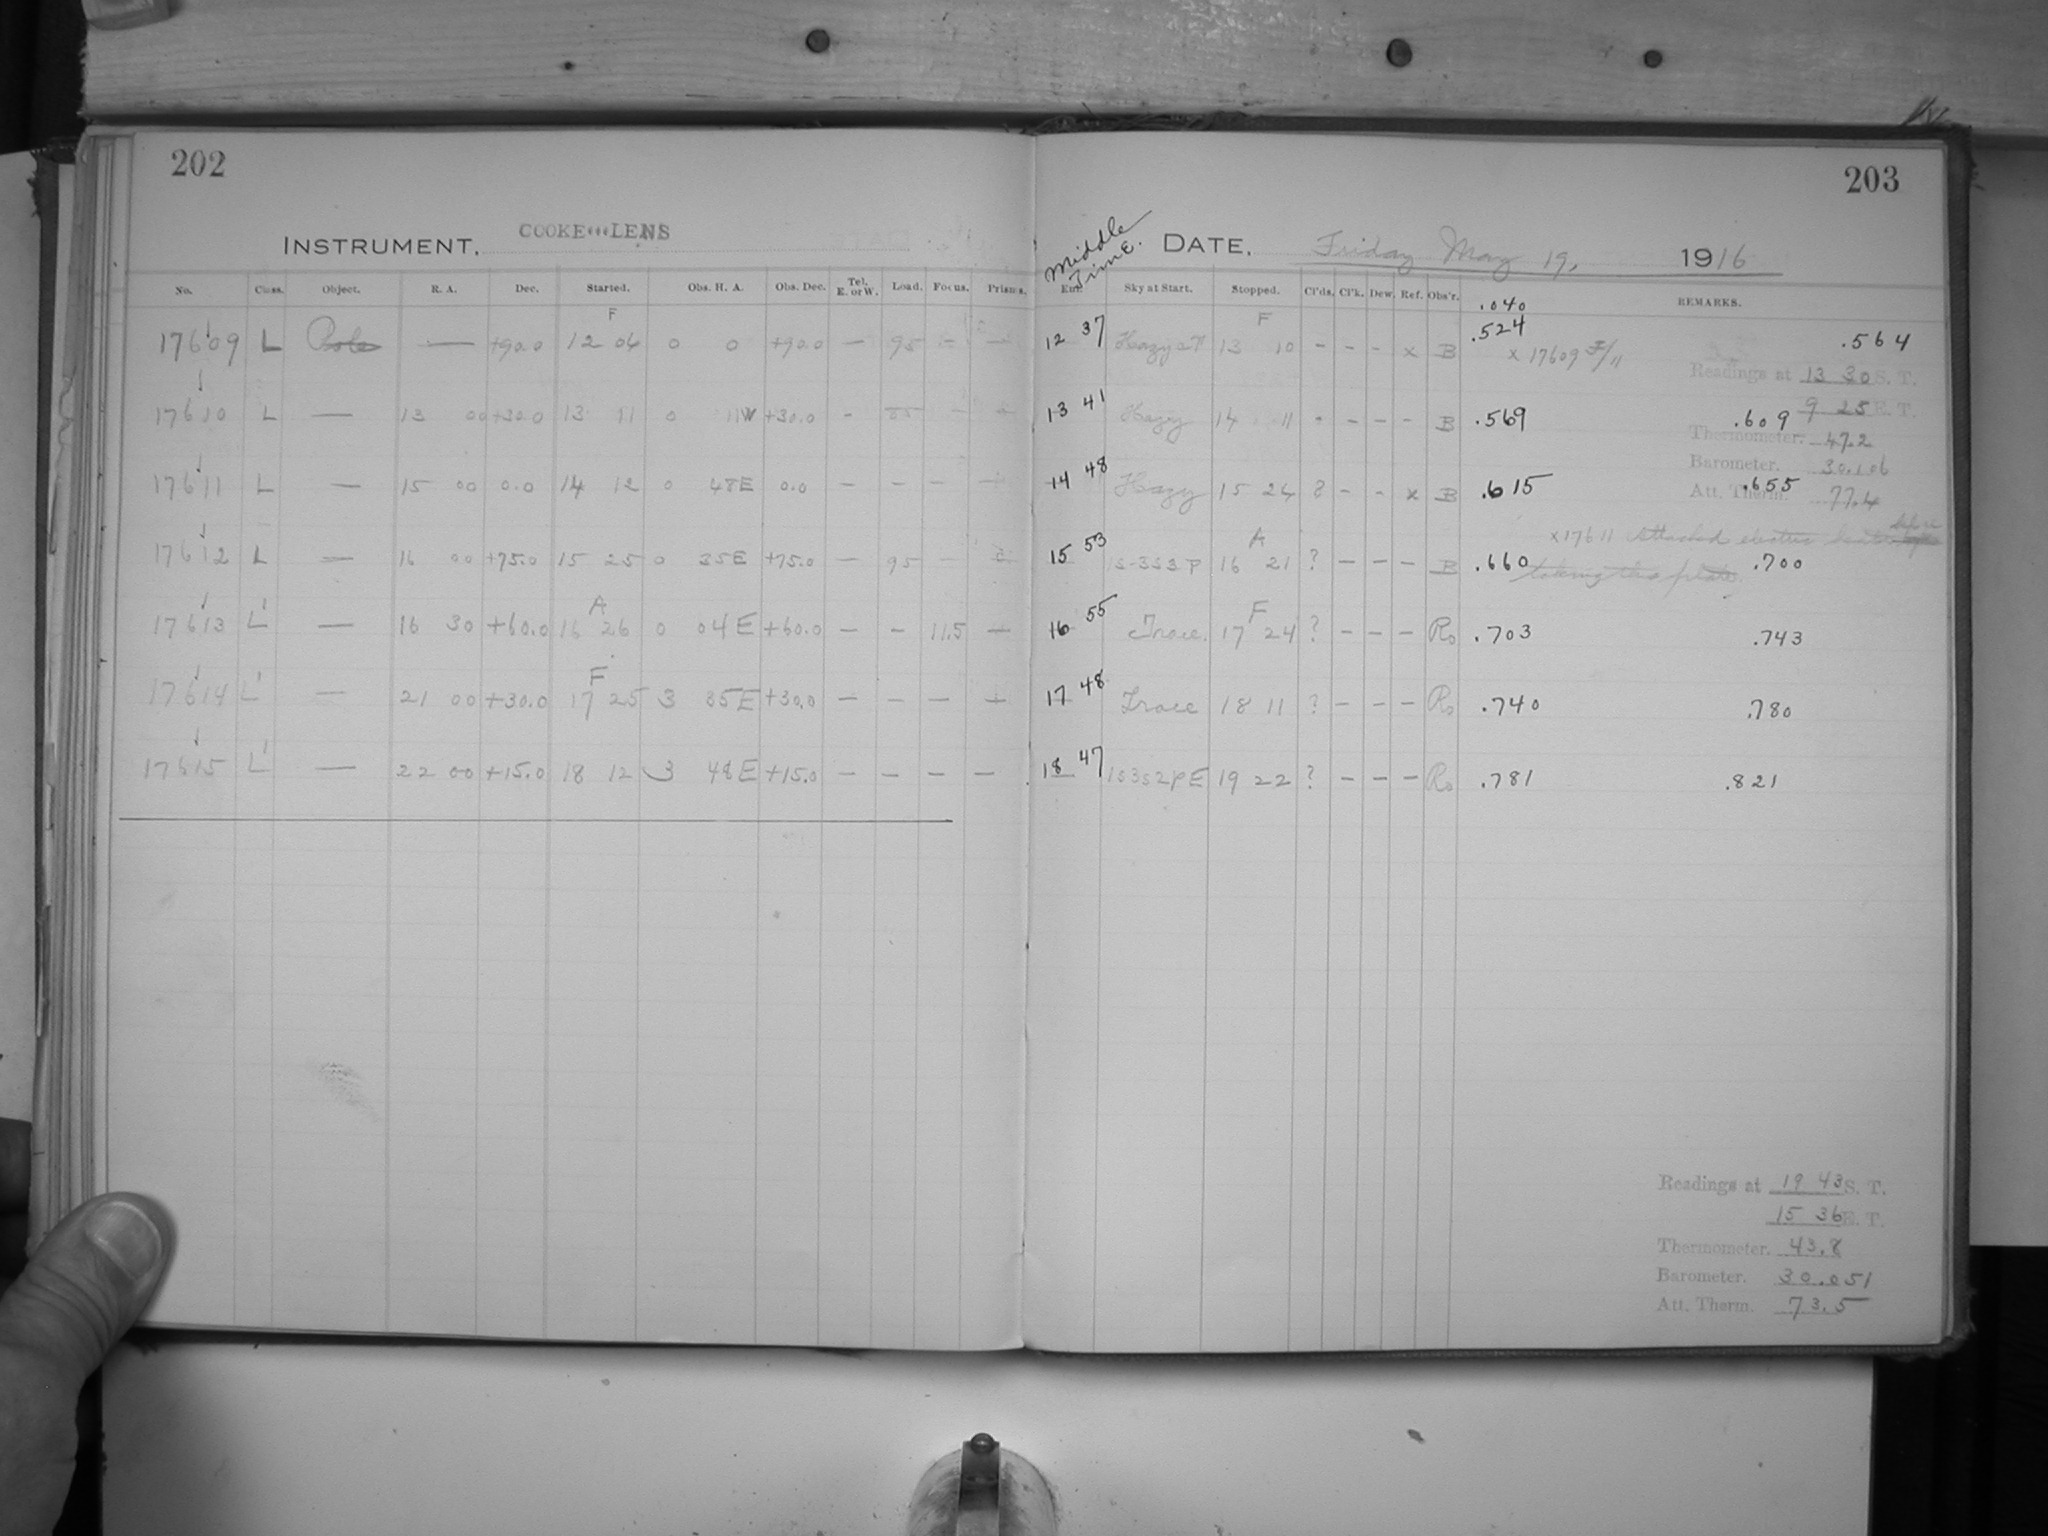 202
203
INSTRUMENT. COOKE LENS
Middle Time.
DATE. Friday May 19, 1916
No. Class. Object. R. A. Dec. Started. Obs. H. A. Obs. Dec. Tel. E. or W. Load. Focus. Prisms. Sky at Start. Stopped. Cl'ds. Cl'k. Dew. Ref. Obs'r. .040 REMARKS.
F F
17609 L Pole — +90.0 12 04 0 0 +90.0 — 95 — — 12 37 Hazy 13 10 – – – x B .524 .564
x 17609 F/11
Readings at 13 30 S. T.
9 25 E. T.
17610 L — 13 00 +30.0 13 11 0 11W +30.0 - — 13 41 Hazy 14 11 - – – – B .569 .609
Thermometer. 47.2
Barometer. 30.106
17611 L — 15 00 0.0 14 12 0 48E 0.0 – – – — 14 48 Hazy 15 24 ? – – x B .615 .655
Att. Therm. 77.4
x17611 Attached electric heater before
A
17612 L — 16 00 +75.0 15 25 0 35E +75.0 — 95 – 15 53 1s-3s3p 16 21 ? – – – B .660 .700
taking this plate.
A F
17613 L' — 16 30 +60.0 16 26 0 04E +60.0 — – 11.5 — 16 55 Trace. 17 24 ? – – – Ro .703 .743
F
17614 L' — 21 00 +30.0 17 25 3 35E +30.0 — – – — 17 48 Trace 18 11 ? – – – Ro .740 .780
17615 L' — 22 00 +15.0 18 12 3 48E +15.0 – – – – 18 47 1s3s2pE 19 22 ? – – – Ro .781 .821
Readings at 19 43 S. T.
15 36 E. T.
Thermometer. 43.8
Barometer. 30.051
Att. Therm. 73.5